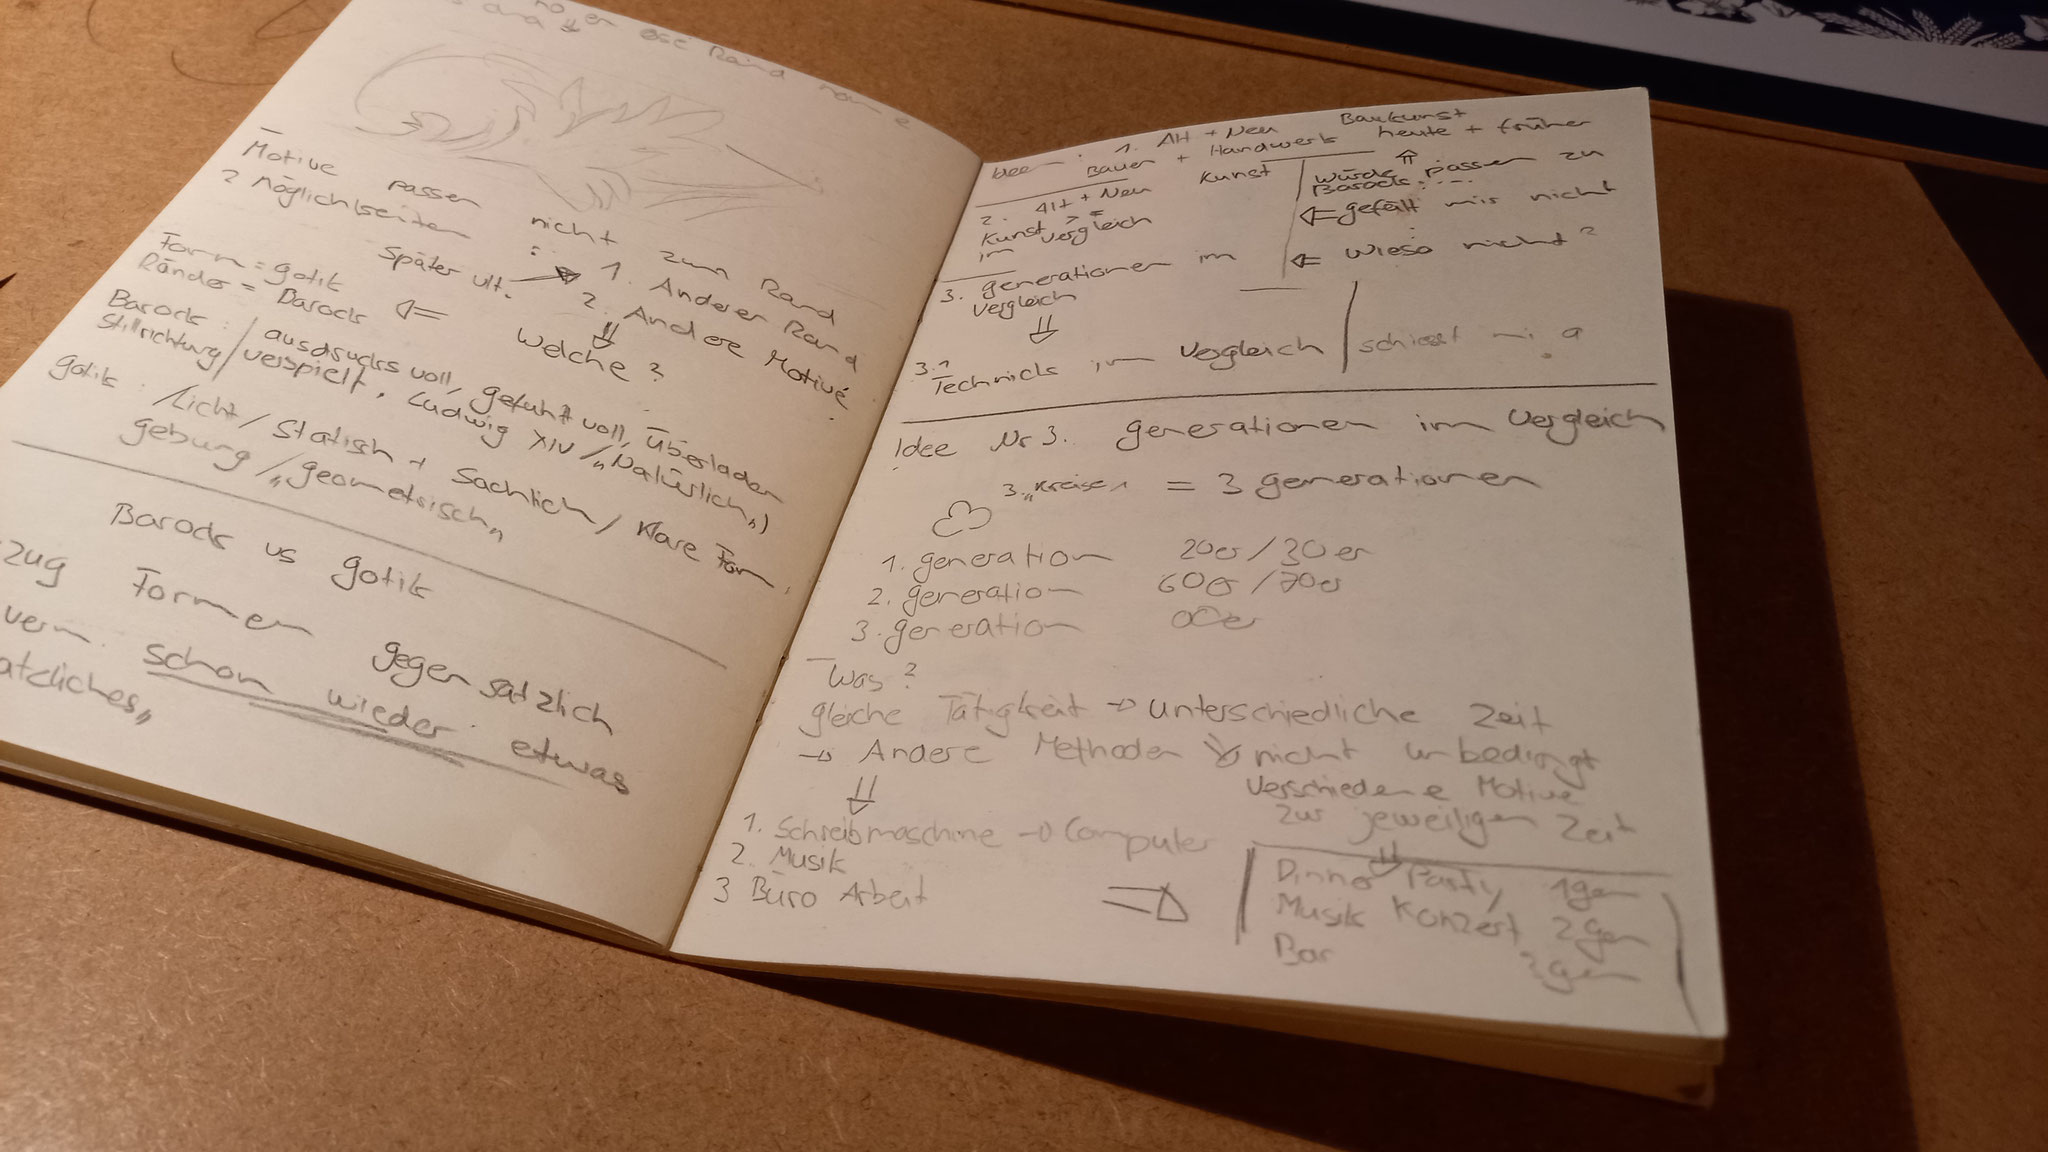 Rand
Motive passen nicht zum Rand
2 Möglichkeiten : 1. Anderer Rand
später ult. 2. Andere Motive
Form = gotik welche ?
Ränder = Barock
Barock : ausdrucks voll, gefühl voll, Überladen
Stillrichtung / verspielt, Ludwig XIV / „Natürlich„)
gotik : /Licht / Statisch + Sachlich / Klare Form,
gebung / „geometrisch„
Barock vs gotik
zug Formen gegensätzlich
schon wieder etwas
atzliches„
Ideen : 1. Alt + Neu Baukunst
Bauer + Handwerk heute + früher
2. Alt + Neu Kunst würde passen zu
Kunst Barock
im vergleich gefällt mir nicht
3. generationen im wieso nicht ?
vergleich
3.1 Technick im vergleich
Idee Nr 3. generationen im vergleich
3. „Kreise„ = 3 generationen
1. generation 20er / 30er
2. generation 60er / 70er
3. generation 00er
Was ?
gleiche Tätigkeit → unterschiedliche Zeit
→ Andere Methoden nicht unbedingt
verschiedene Motive
zur jeweiligen Zeit
1. Schreibmaschine → Computer
2. Musik
3 Büro Arbeit
Dinner Party 1gen
Musik Konzert 2gen
Bar 3gen